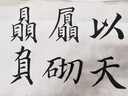 贔屭以
負砌天